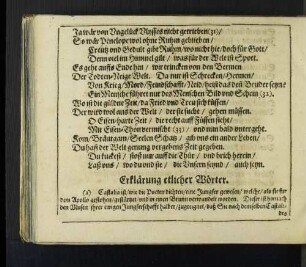 Ja wär von Ungelück Ulysses nicht getrieben (31)/
So wär Penelope wol ohne Ruhm geblieben/
Creutz und Gedult gibt Ruhm/ wo nicht hie/ doch für Gott/
Denn viel im Himmel gilt/ was für der Welt ist Spott.
Es geht auffs Ende hin/ wir trincken von den
Der Todten Neige. Welt. Da nur ist Schrecken/
Von Krieg/ Mord/ Feindschafft/ Neid/ heist das des Bruder seyn?
Ein Mensche führet nur des Menschen Bild und Schein (32).
Wo ist die güldne Zeit/ da Fried und Treu sich küssen/
Der wird wol aus der Welt/ der sie sucht/ gehen müssen.
O Eisen-harte Zeit/ die recht auff Füssen steht/
Mit Eisen-Thon vermischt (33)/ und nun bald untergeht.
Kom/ Bräutgam/ Seelen Schatz/ gib uns ein ander Leben/
Du hast der Welt genung vergebens Zeit gegeben.
Du kuckest/ stoß nur auff die Thür/ und brich herein/
Laß uns/ wo du und sie/ die Unsern seynd/ auch seyn.
Erklärung etlicher Wörter.
(1) Castalia ist/ wie die Poeten dichten/ eine Jungfer gewesen/ welche/ als sie für
dem Apollo geflohen/ gestürtzet/ und in einen Brunn verwandelt worden. Dieser ist hernach
den Musen ihrer ewigen Jungferschafft halber/ zugeeignet/ daß Sie nach demselben Castali-
des